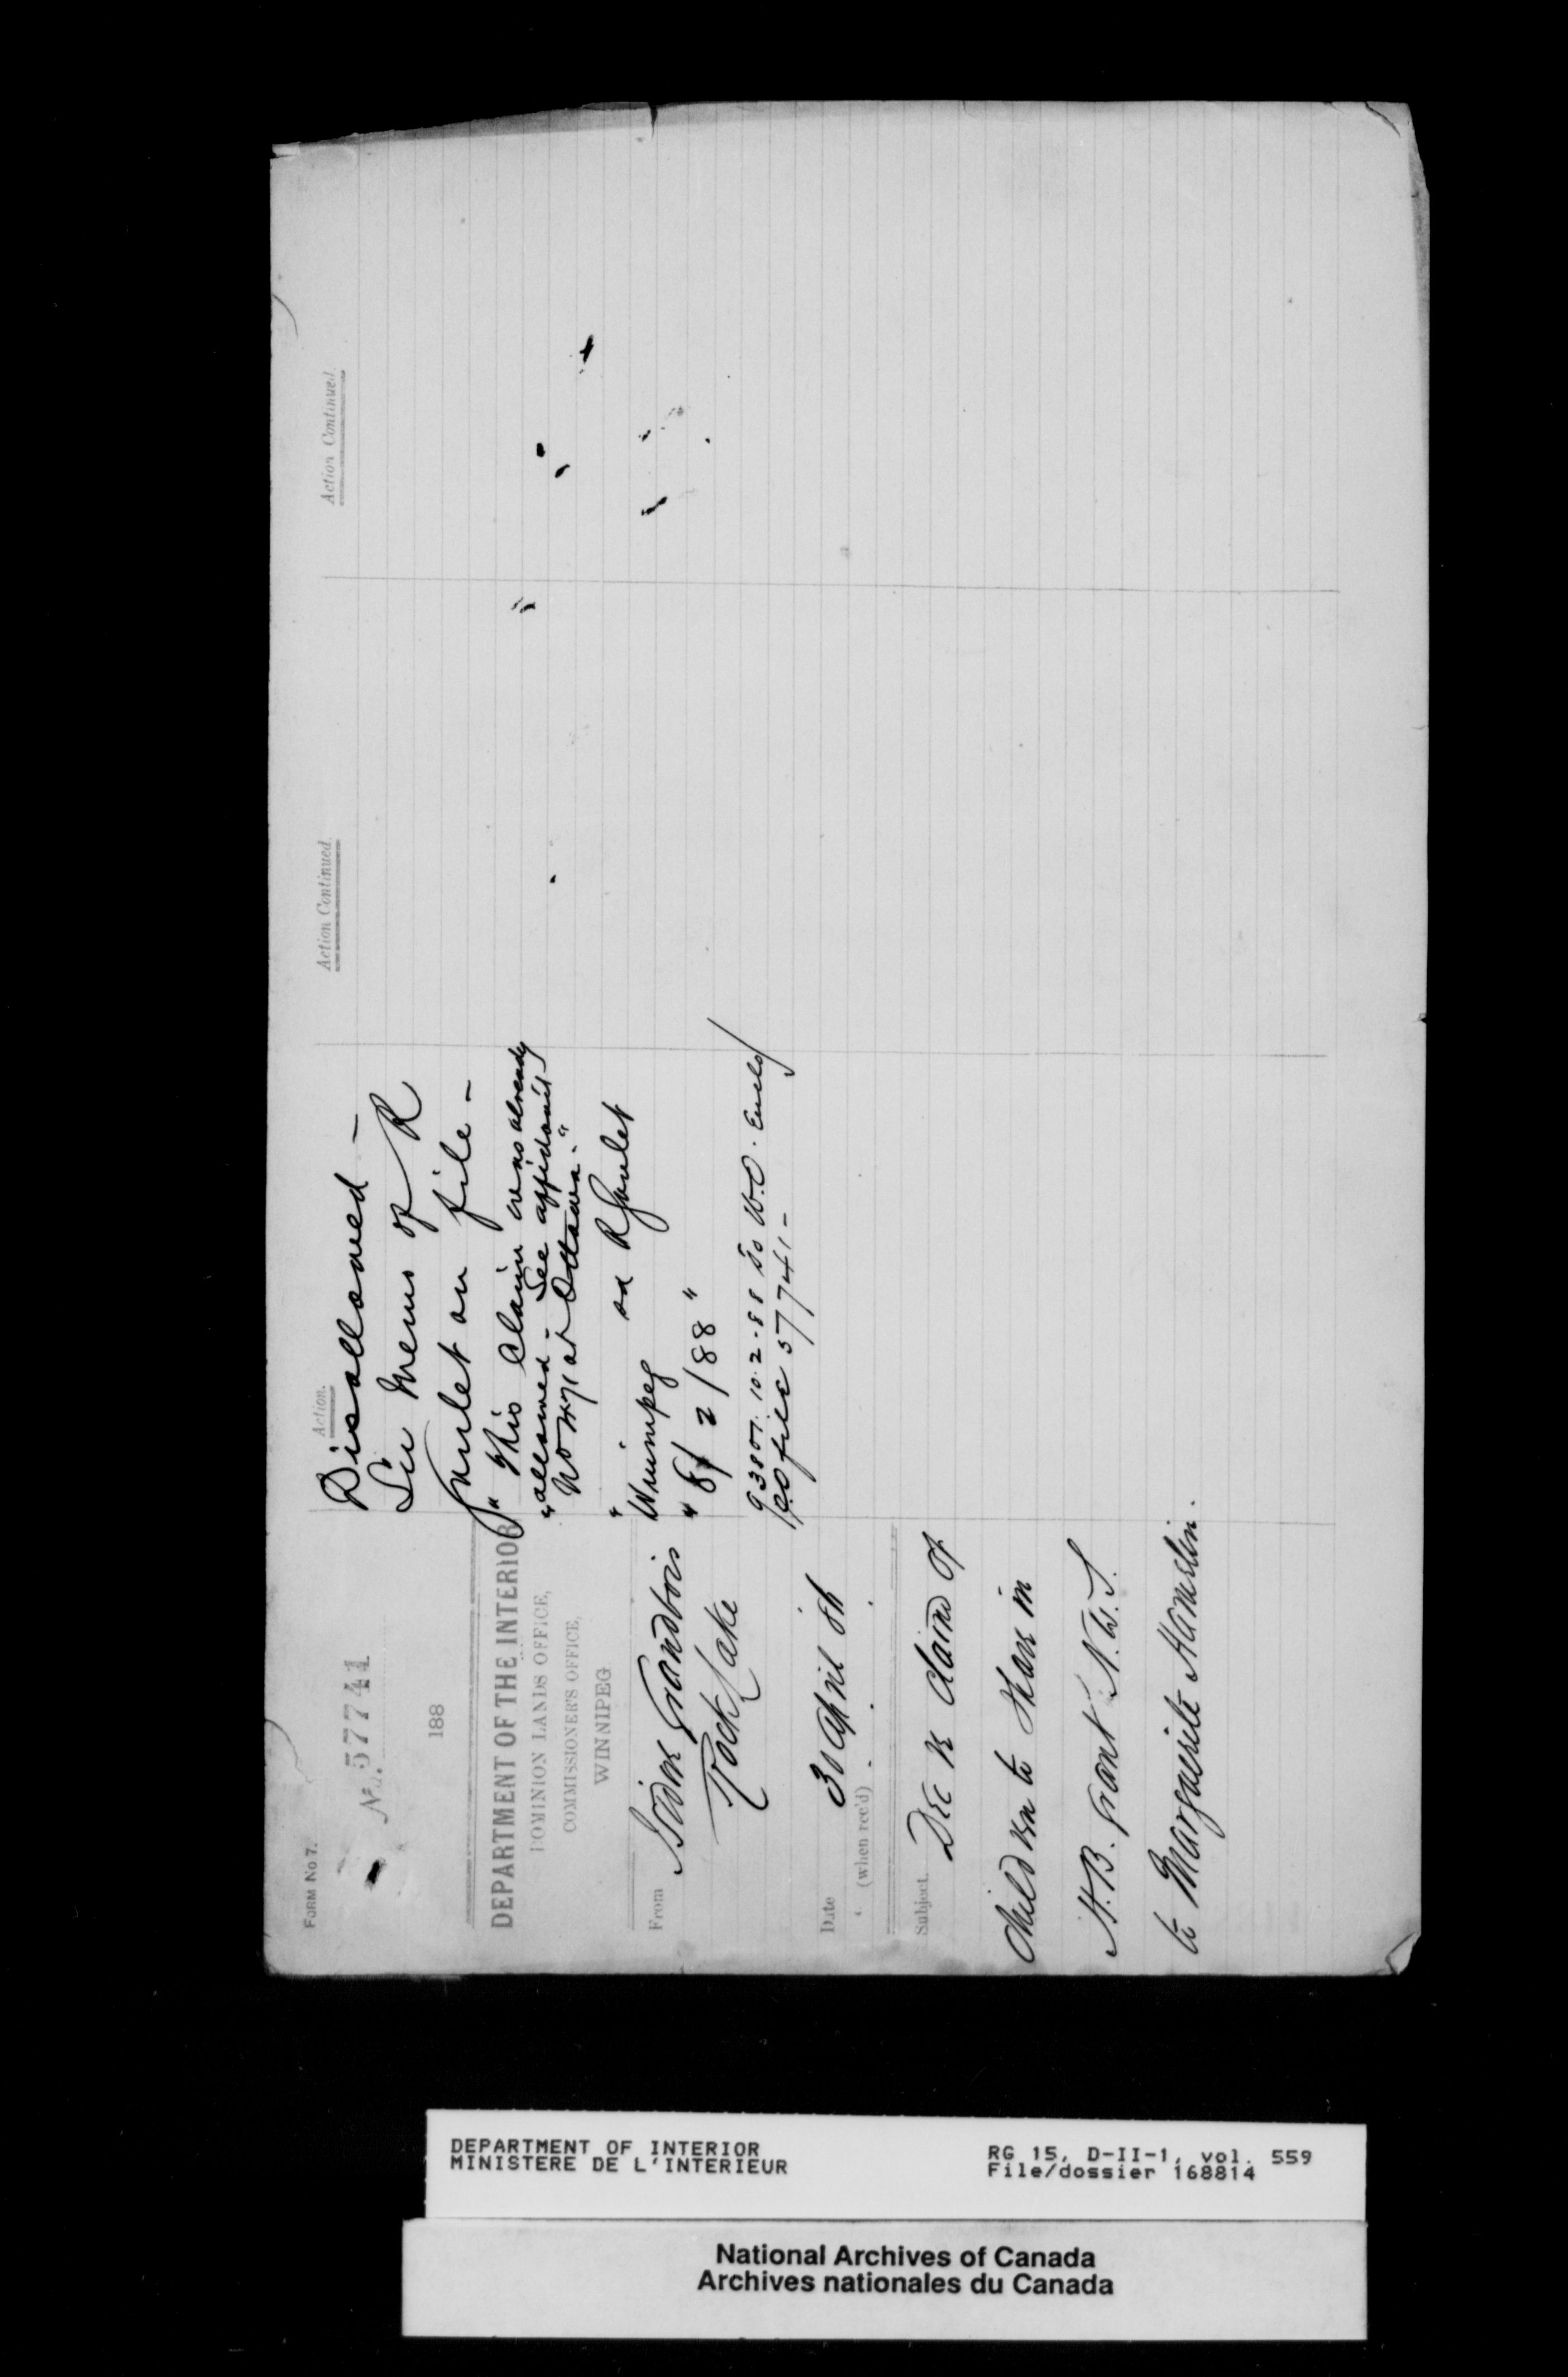 FORM No 7.
No. 57741
188
DEPARTMENT OF THE INTERIOR
DOMINION LANDS OFFICE,
COMMISSIONER'S OFFICE,
WINNIPEG
From
Grandbois
Rock Lake
Date
30 April
(when rec'd)
Subject.
Dec re Claim of
Children to Share in
H.B. Grant N.W.T.
to Marguerite Hamelin.
Action.
Disallowed —
See Memo of R
Goulet on file —
" This Claim was already
" allowed - See affidavit
at Ottawa - "
" sd R Goulet
Winnipeg
" 8/2/88 "
93807. 10.2.88 To W.O. Encls
file 57741 -
Action Continued
Action Continued
DEPARTMENT OF INTERIOR
MINISTERE DE L'INTERIEUR
RG 15, D-II-1, vol. 559
File/dossier 168814
National Archives of Canada
Archives nationales du Canada